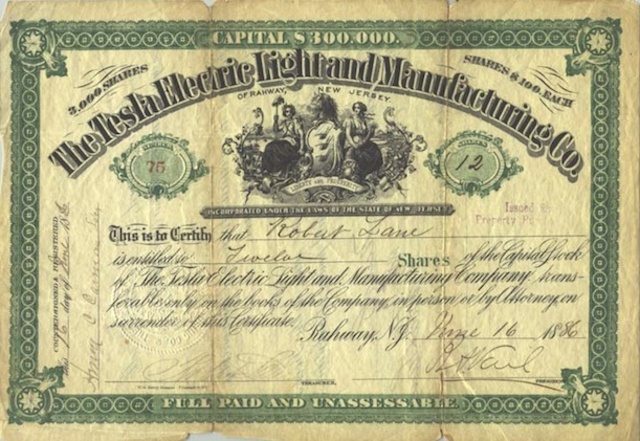 CAPITAL $300,000.
3,000 SHARES
SHARES $100. EACH
The Tesla Electric Light and Manufacturing Co.
OF RAHWAY, NEW JERSEY.
SHARES
75
SHARES
12
LIBERTY AND PROSPERITY
INCORPORATED UNDER THE LAWS OF THE STATE OF NEW JERSEY
Issued
Property
This is to Certify that Robert Lane
is entitled to Twelve Shares of the Capital Stock
of The Tesla Electric Light and Manufacturing Company, trans-
ferable only on the books of the Company, in person or by Attorney, on
surrender of this Certificate.
Rahway, N.J. June 16 1886
TREASURER.
PRESIDENT
COUNTERSIGNED & REGISTERED
this 16 day of June 1886
FULL PAID AND UNASSESSABLE.